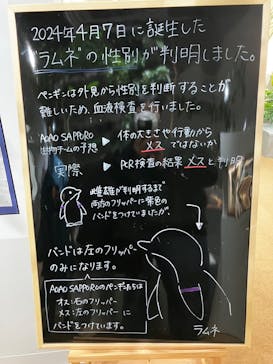 2024年4月7日に誕生した
"ラムネ"の性別が判明しました。
ペンギンは外見から性別を判断することが
難しいため、血液検査を行いました。
AOAO SAPPORO
生物チームの予想 → 体の大きさや行動から
メスではないか
実際 → PCR検査の結果 メスと判明
雌雄が判明するまで
両方のフリッパーに紫色の
バンドをつけていましたが、
バンドは左のフリッパー
のみになります。
AOAO SAPPOROのペンギンたちは
オス：右のフリッパー
メス：左のフリッパーに
バンドをつけています。
ラムネ